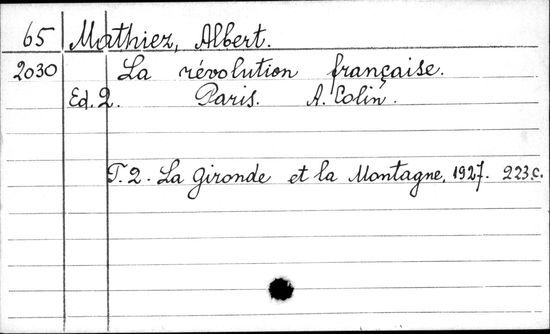 65 Mathiez, Albert.
2030 La révolution française.
Ed. 2. Paris. A. Colin.
T. 2. La Gironde et la Montagne, 1927. 223 c.